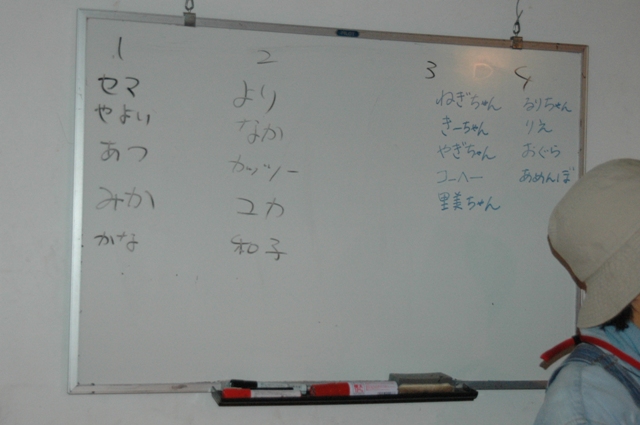 1
セマ
やよい
あつ
みか
かな
2
より
なか
カッツー
ユカ
和子
3
ねぎちゃん
きーちゃん
やぎちゃん
コーヘー
里美ちゃん
4
るりちゃん
りえ
おぐら
あめんぼ